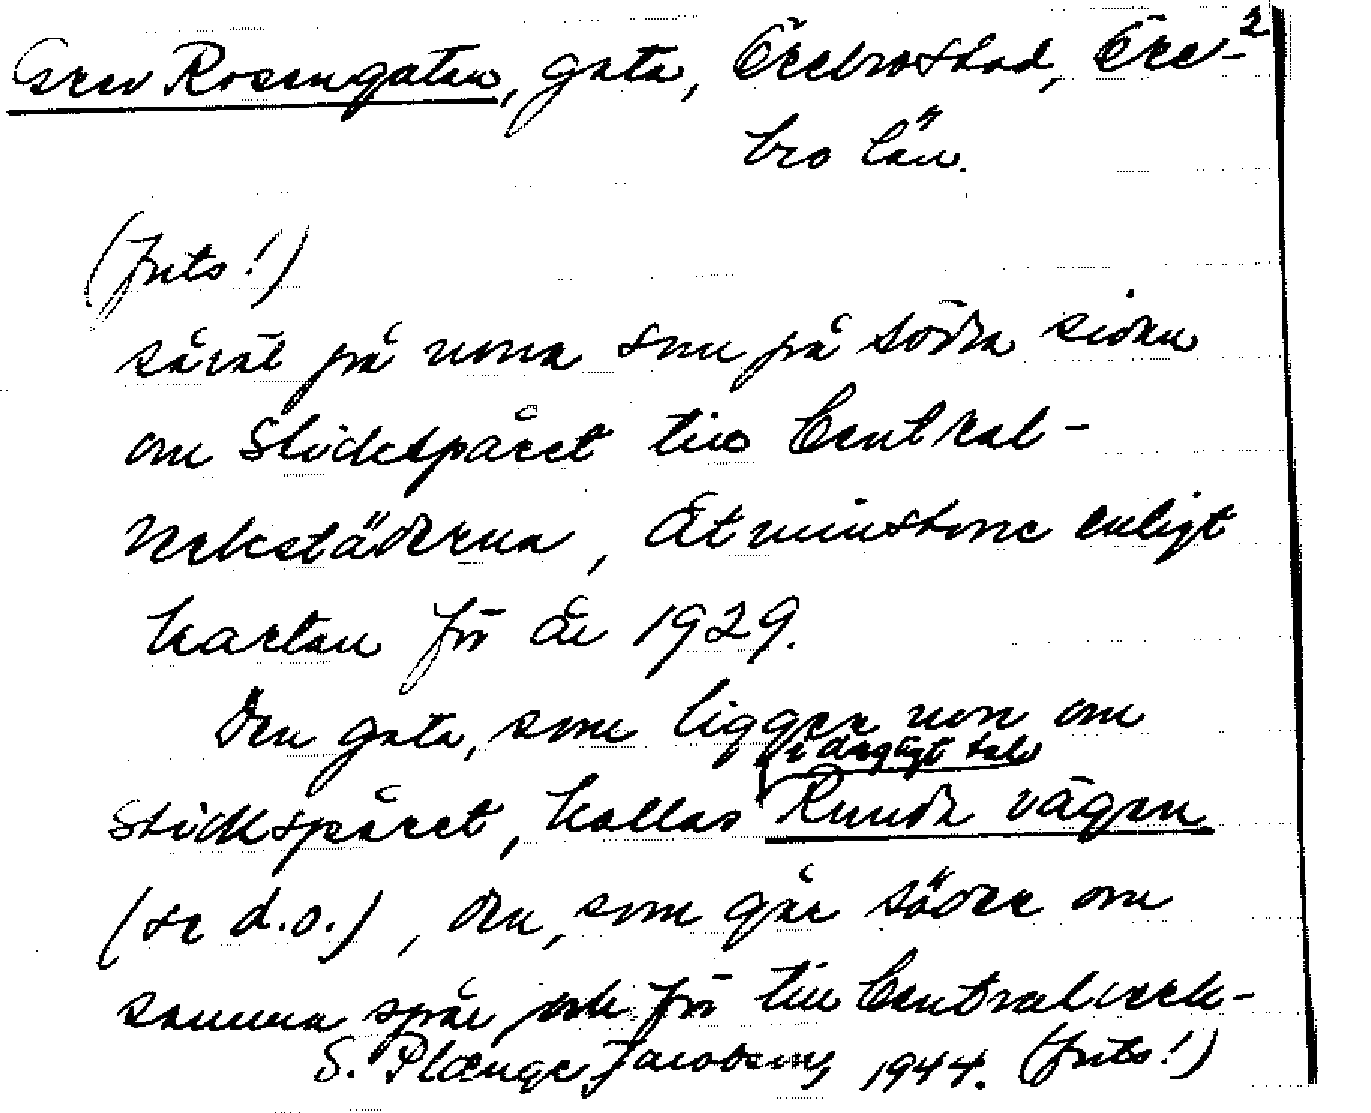 Grev Rosengatan, gata, Örebro stad, Öre- 2
bro län.
(forts!)
såväl på norra som på södra sidan
om Stickspåret till Central-
verkstäderna, åtminstone enligt
kartan för år 1929.
Den gata, som ligger norr om
i dagligt tal
Stickspåret, kallas Runda vägen
(se d.o.), den, som går söder om
samma spår och för till Centralverk-
S. Plænge Jacobson, 1944. (forts!)